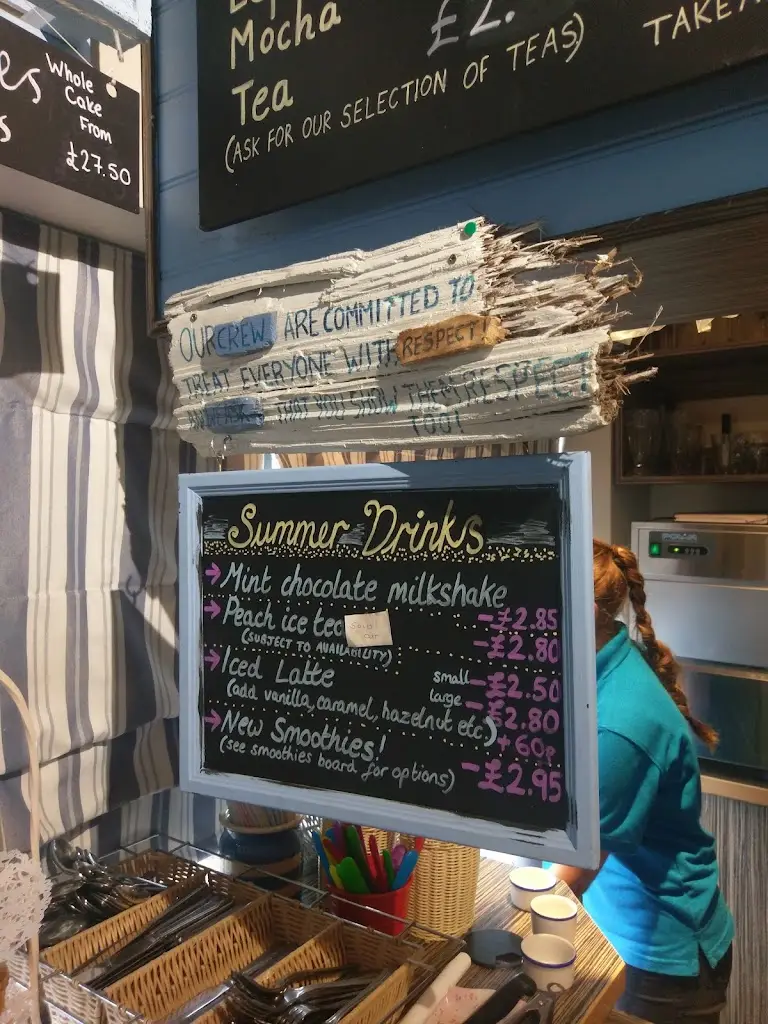 Mocha £2.
Tea TAKEA
(ASK FOR OUR SELECTION OF TEAS)
es Whole
s Cake
From
£27.50
OUR CREW ARE COMMITTED TO
TREAT EVERYONE WITH RESPECT!
THAT YOU SHOW THEM RESPECT
TOO!
Summer Drinks
→ Mint chocolate milkshake -£2.85
→ Peach ice tea SOLD OUT -£2.80
(SUBJECT TO AVAILABILITY)
→ Iced Latte small -£2.50
large -£2.80
(add vanilla, caramel, hazelnut etc.) +60p
→ New Smoothies! -£2.95
(see smoothies board for options)
POLAR